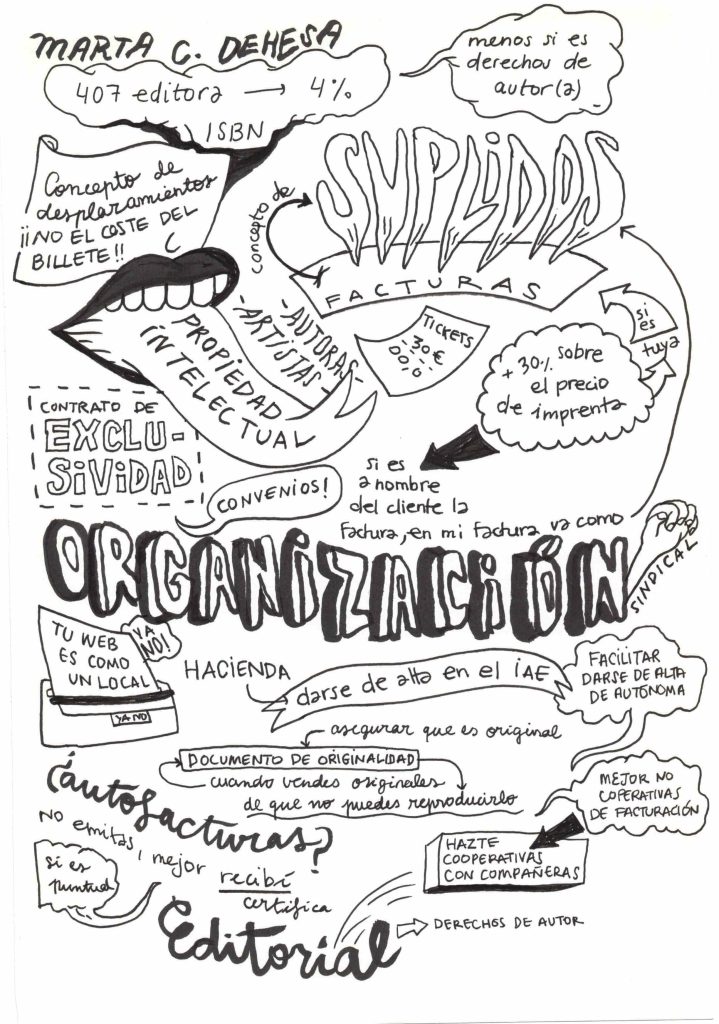 MARTA C. DEHESA
407 editora → 4%
ISBN
menos si es
derechos de
autor(a)
Concepto de
desplazamientos
¡¡NO EL COSTE DEL
BILLETE!!
concepto de
SUPLIDOS
FACTURAS
TICKETS
-30€
PROPIEDAD
INTELECTUAL
-AUTORAS-
-ARTISTAS-
si es
tuya
+30% sobre
el precio
de imprenta
CONTRATO DE
EXCLU-
SIVIDAD
CONVENIOS!
si es
a nombre
del cliente la
factura, en mi factura va como
ORGANIZACIÓN
SINDICAL
TU WEB
ES COMO
UN LOCAL
YA
NO!
YA NO
HACIENDA
darse de alta en el IAE
FACILITAR
DARSE DE ALTA
DE AUTÓNOMA
asegurar que es original
DOCUMENTO DE ORIGINALIDAD
cuando vendes originales
de que no puedes reproducirlo
¿autofacturas?
No emitas, mejor
recibí
certifica
si es
puntual
MEJOR NO
COPERATIVAS
DE FACTURACIÓN
HAZTE
COOPERATIVAS
CON COMPAÑERAS
Editorial
DERECHOS DE AUTOR